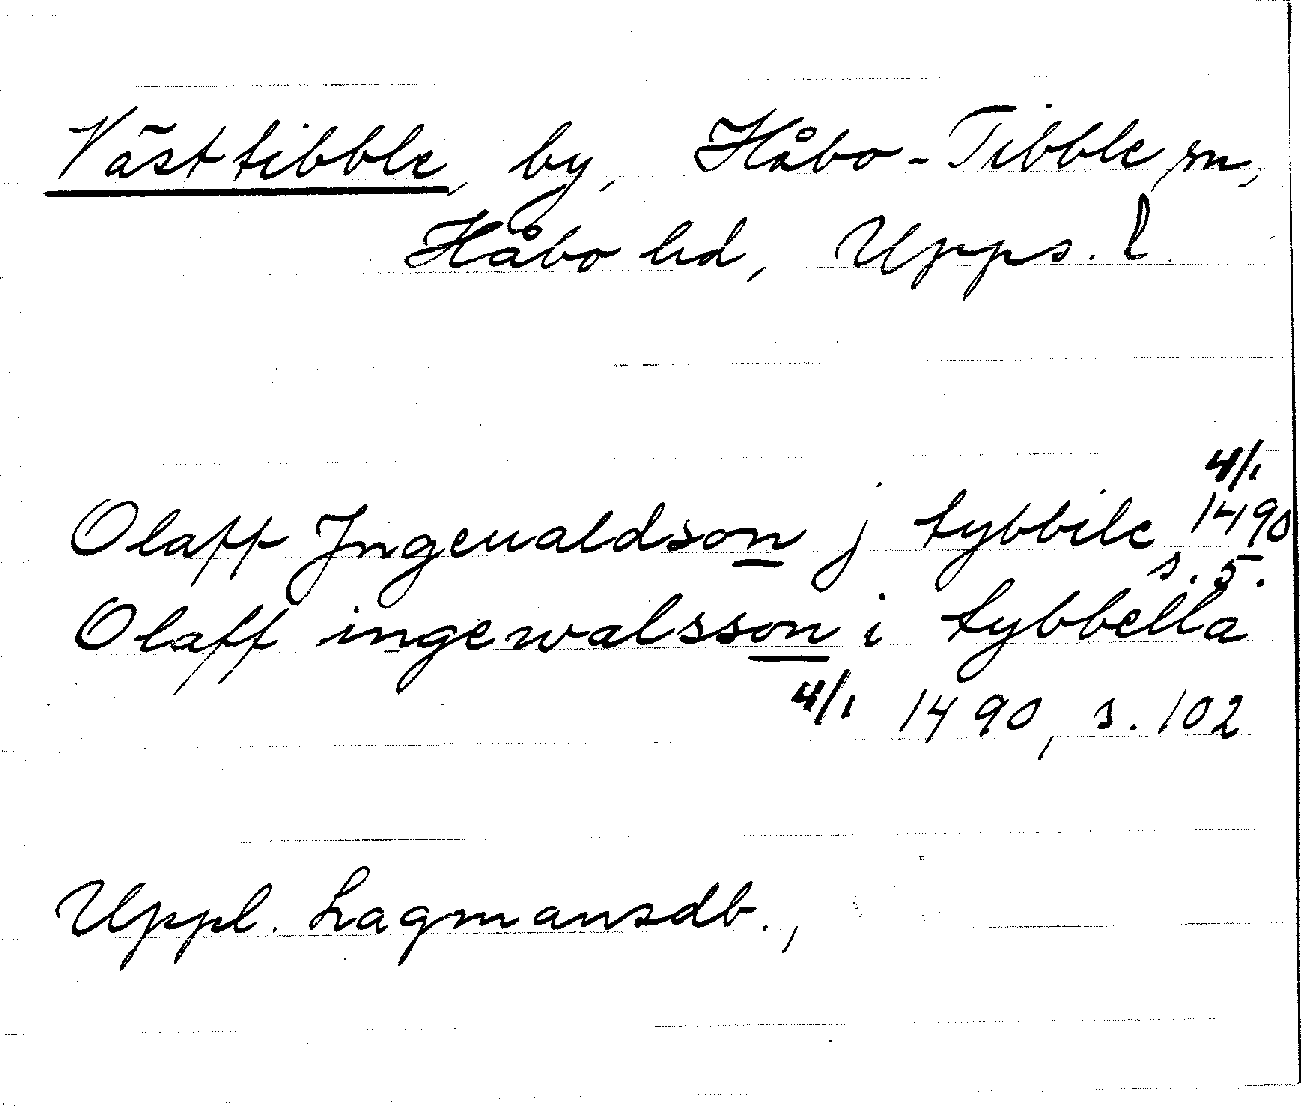 Västtibble, by, Håbo-Tibble sn,
Håbo hd, Upps. l.
4/1
Olaff Jngeualdson j tybbile 1490
s. 5.
Olaff ingewalsson i tybbella
4/1 1490, s. 102
Uppl. Lagmansdb.,